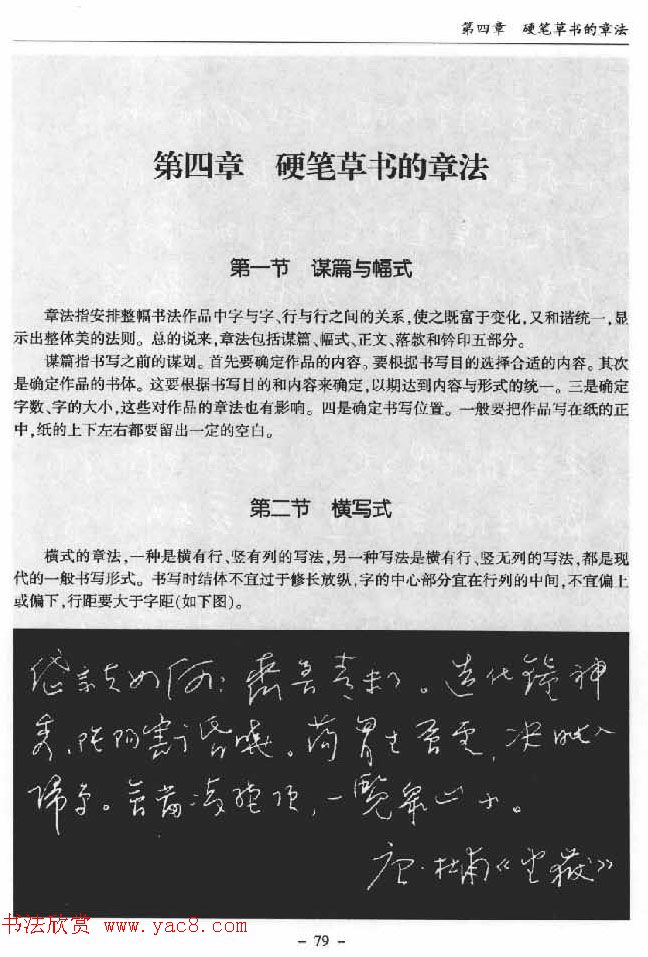 第四章 硬笔草书的章法
第四章 硬笔草书的章法
第一节 谋篇与幅式
章法指安排整幅书法作品中字与字、行与行之间的关系,使之既富于变化,又和谐统一,显
示出整体美的法则。总的说来,章法包括谋篇、幅式、正文、落款和钤印五部分。
谋篇指书写之前的谋划。首先要确定作品的内容。要根据书写目的选择合适的内容。其次
是确定作品的书体。这要根据书写目的和内容来确定,以期达到内容与形式的统一。三是确定
字数、字的大小,这些对作品的章法也有影响。四是确定书写位置。一般要把作品写在纸的正
中,纸的上下左右都要留出一定的空白。
第二节 横写式
横式的章法,一种是横有行、竖有列的写法,另一种写法是横有行、竖无列的写法,都是现
代的一般书写形式。书写时结体不宜过于修长放纵,字的中心部分宜在行列的中间,不宜偏上
或偏下,行距要大于字距(如下图)。
岱宗夫如何?齊魯青未了。造化鍾神
秀,陰陽割昏曉。蕩胸生層雲,決眦入
歸鳥。會當凌絕頂,一覽眾山小。
唐·杜甫《望嶽》
书法欣赏 www.yac8.com
- 79 -